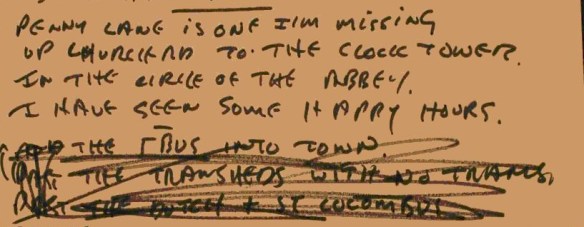 PENNY LANE IS ONE I'M MISSING
UP CHURCH RD TO THE CLOCK TOWER.
IN THE CIRCLE OF THE ABBEY.
I HAVE SEEN SOME HAPPY HOURS.
THE 5 BUS INTO TOWN
THE TRAMSHEDS WITH NO TRAMS,
PAST THE DUTCH + ST COLOMBUS